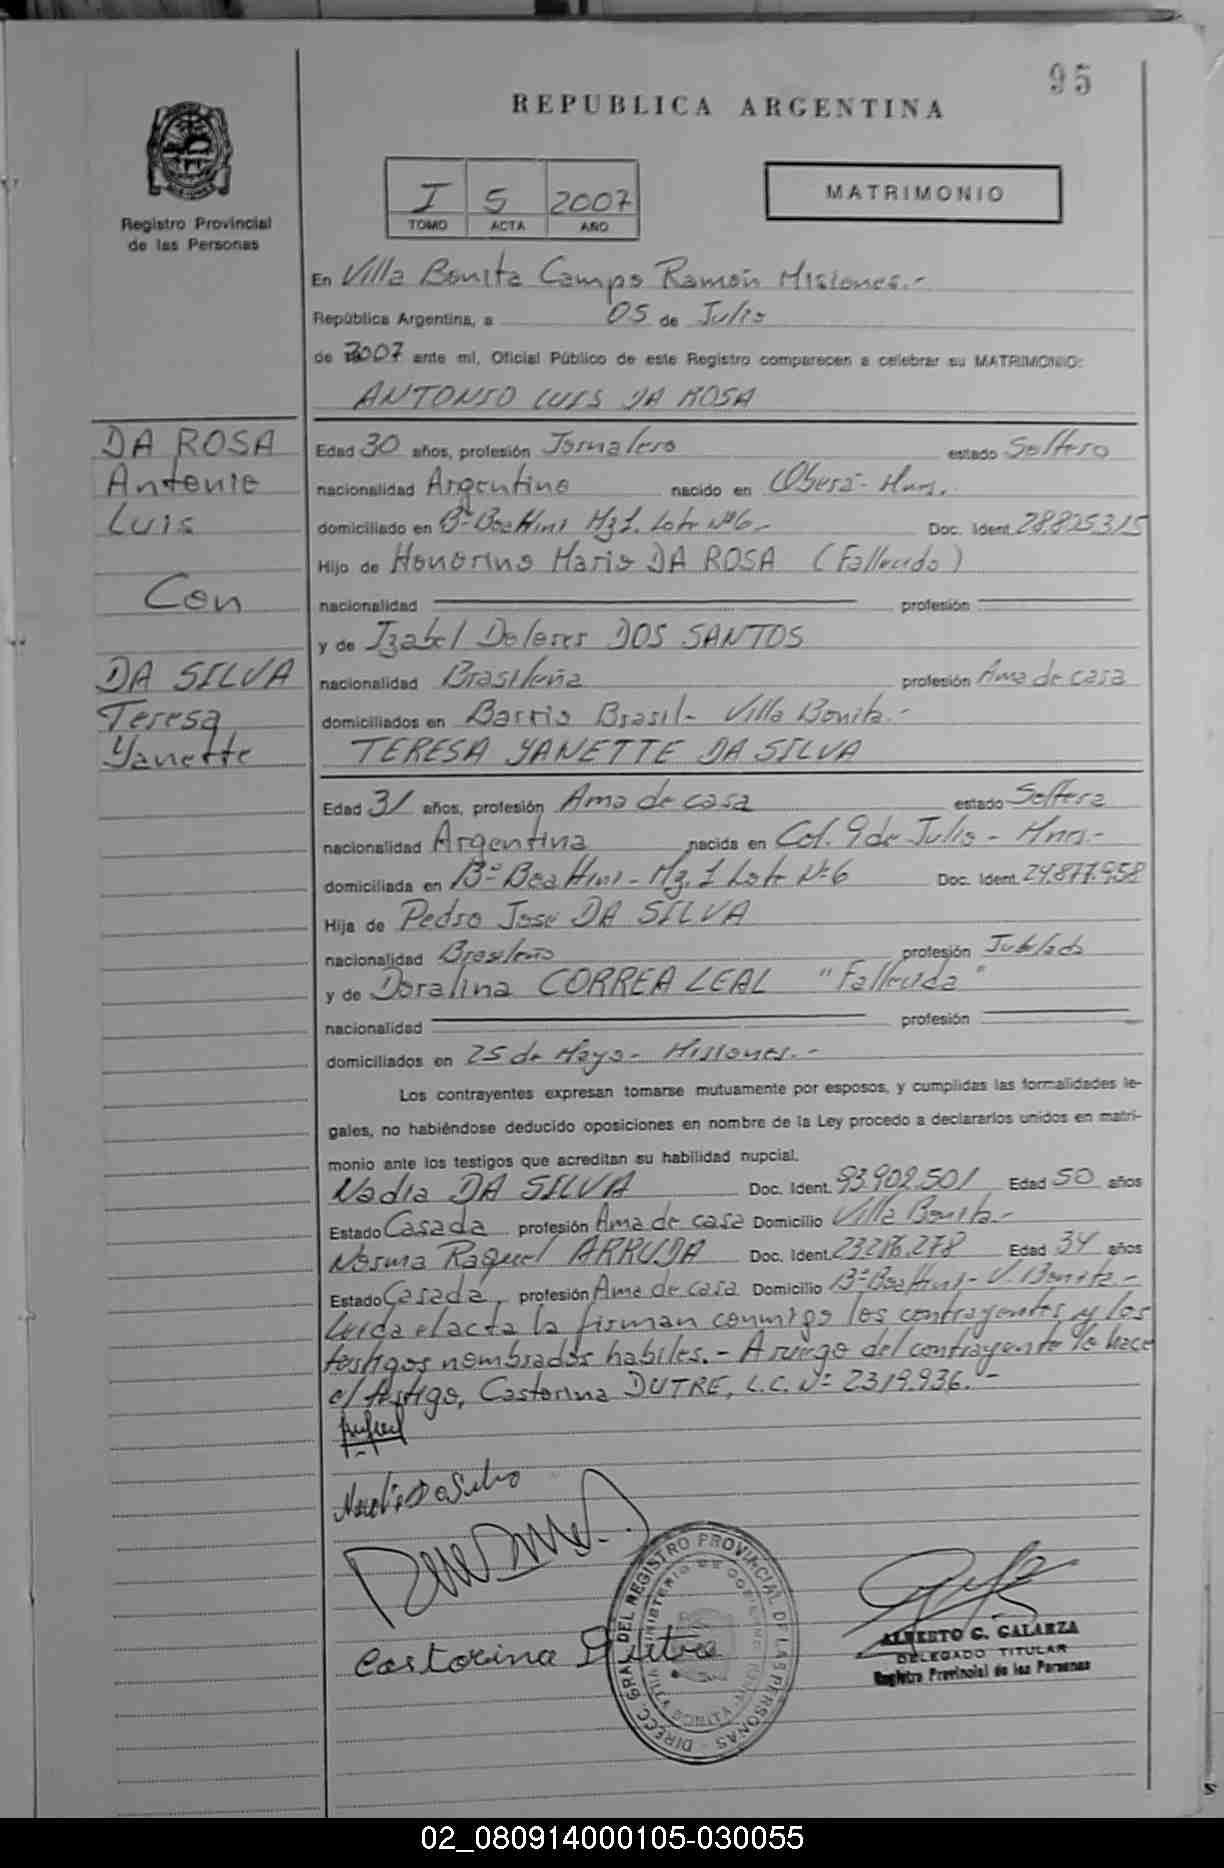 95
REPUBLICA ARGENTINA
Registro Provincial
de las Personas
I 5 2007
TOMO ACTA AÑO
MATRIMONIO
En Villa Bonita Campo Ramón Misiones.-
República Argentina, a 05 de Julio
de 2007 ante mí, Oficial Público de este Registro comparecen a celebrar su MATRIMONIO:
ANTONIO LUIS DA ROSA
DA ROSA
Antonio
Luis
Con
DA SILVA
Teresa
Yanette
Edad 30 años, profesión Jornalero estado Soltero
nacionalidad Argentino nacido en Oberá - Mnes.
domiciliado en Bº Beattini Mz 1. Lote Nº 6.- Doc. Ident. 28.825.315
Hijo de Honorino Mario DA ROSA (Fallecido)
nacionalidad profesión
y de Izabel Dolores DOS SANTOS
nacionalidad Brasileña profesión Ama de casa
domiciliados en Barrio Brasil - Villa Bonita.-
TERESA YANETTE DA SILVA
Edad 31 años, profesión Ama de casa estado Soltera
nacionalidad Argentina nacida en Col. 9 de Julio - Mnes.-
domiciliada en Bº Beattini - Mz. 1 Lote Nº 6 Doc. Ident. 24.877.958
Hija de Pedro José DA SILVA
nacionalidad Brasileño profesión Jubilado
y de Doralina CORREA LEAL "Fallecida"
nacionalidad profesión
domiciliados en 25 de Mayo - Misiones.-
Los contrayentes expresan tomarse mutuamente por esposos, y cumplidas las formalidades le-
gales, no habiéndose deducido oposiciones en nombre de la Ley procedo a declararlos unidos en matri-
monio ante los testigos que acreditan su habilidad nupcial.
Nadia DA SILVA Doc. Ident. 93.902.501 Edad 50 años
Estado Casada profesión Ama de casa Domicilio Villa Bonita.-
Norma Raquel ARRUDA Doc. Ident. 23.286.278 Edad 34 años
Estado Casada, profesión Ama de casa Domicilio Bº Beattini - V. Bonita -
Leida el acta la firman conmigo los contrayentes y los
testigos nombrados habiles. - A ruego del contrayente lo hace
el testigo, Castorina DUTRE, L.C. Nº 2.319.936.-
Castorina Dutra
DIRECC. GRAL. DEL REGISTRO PROVINCIAL DE LAS PERSONAS
MINISTERIO DE GOBIERNO
VILLA BONITA
ALBERTO G. GALARZA
DELEGADO TITULAR
Registro Provincial de las Personas
02_080914000105-030055